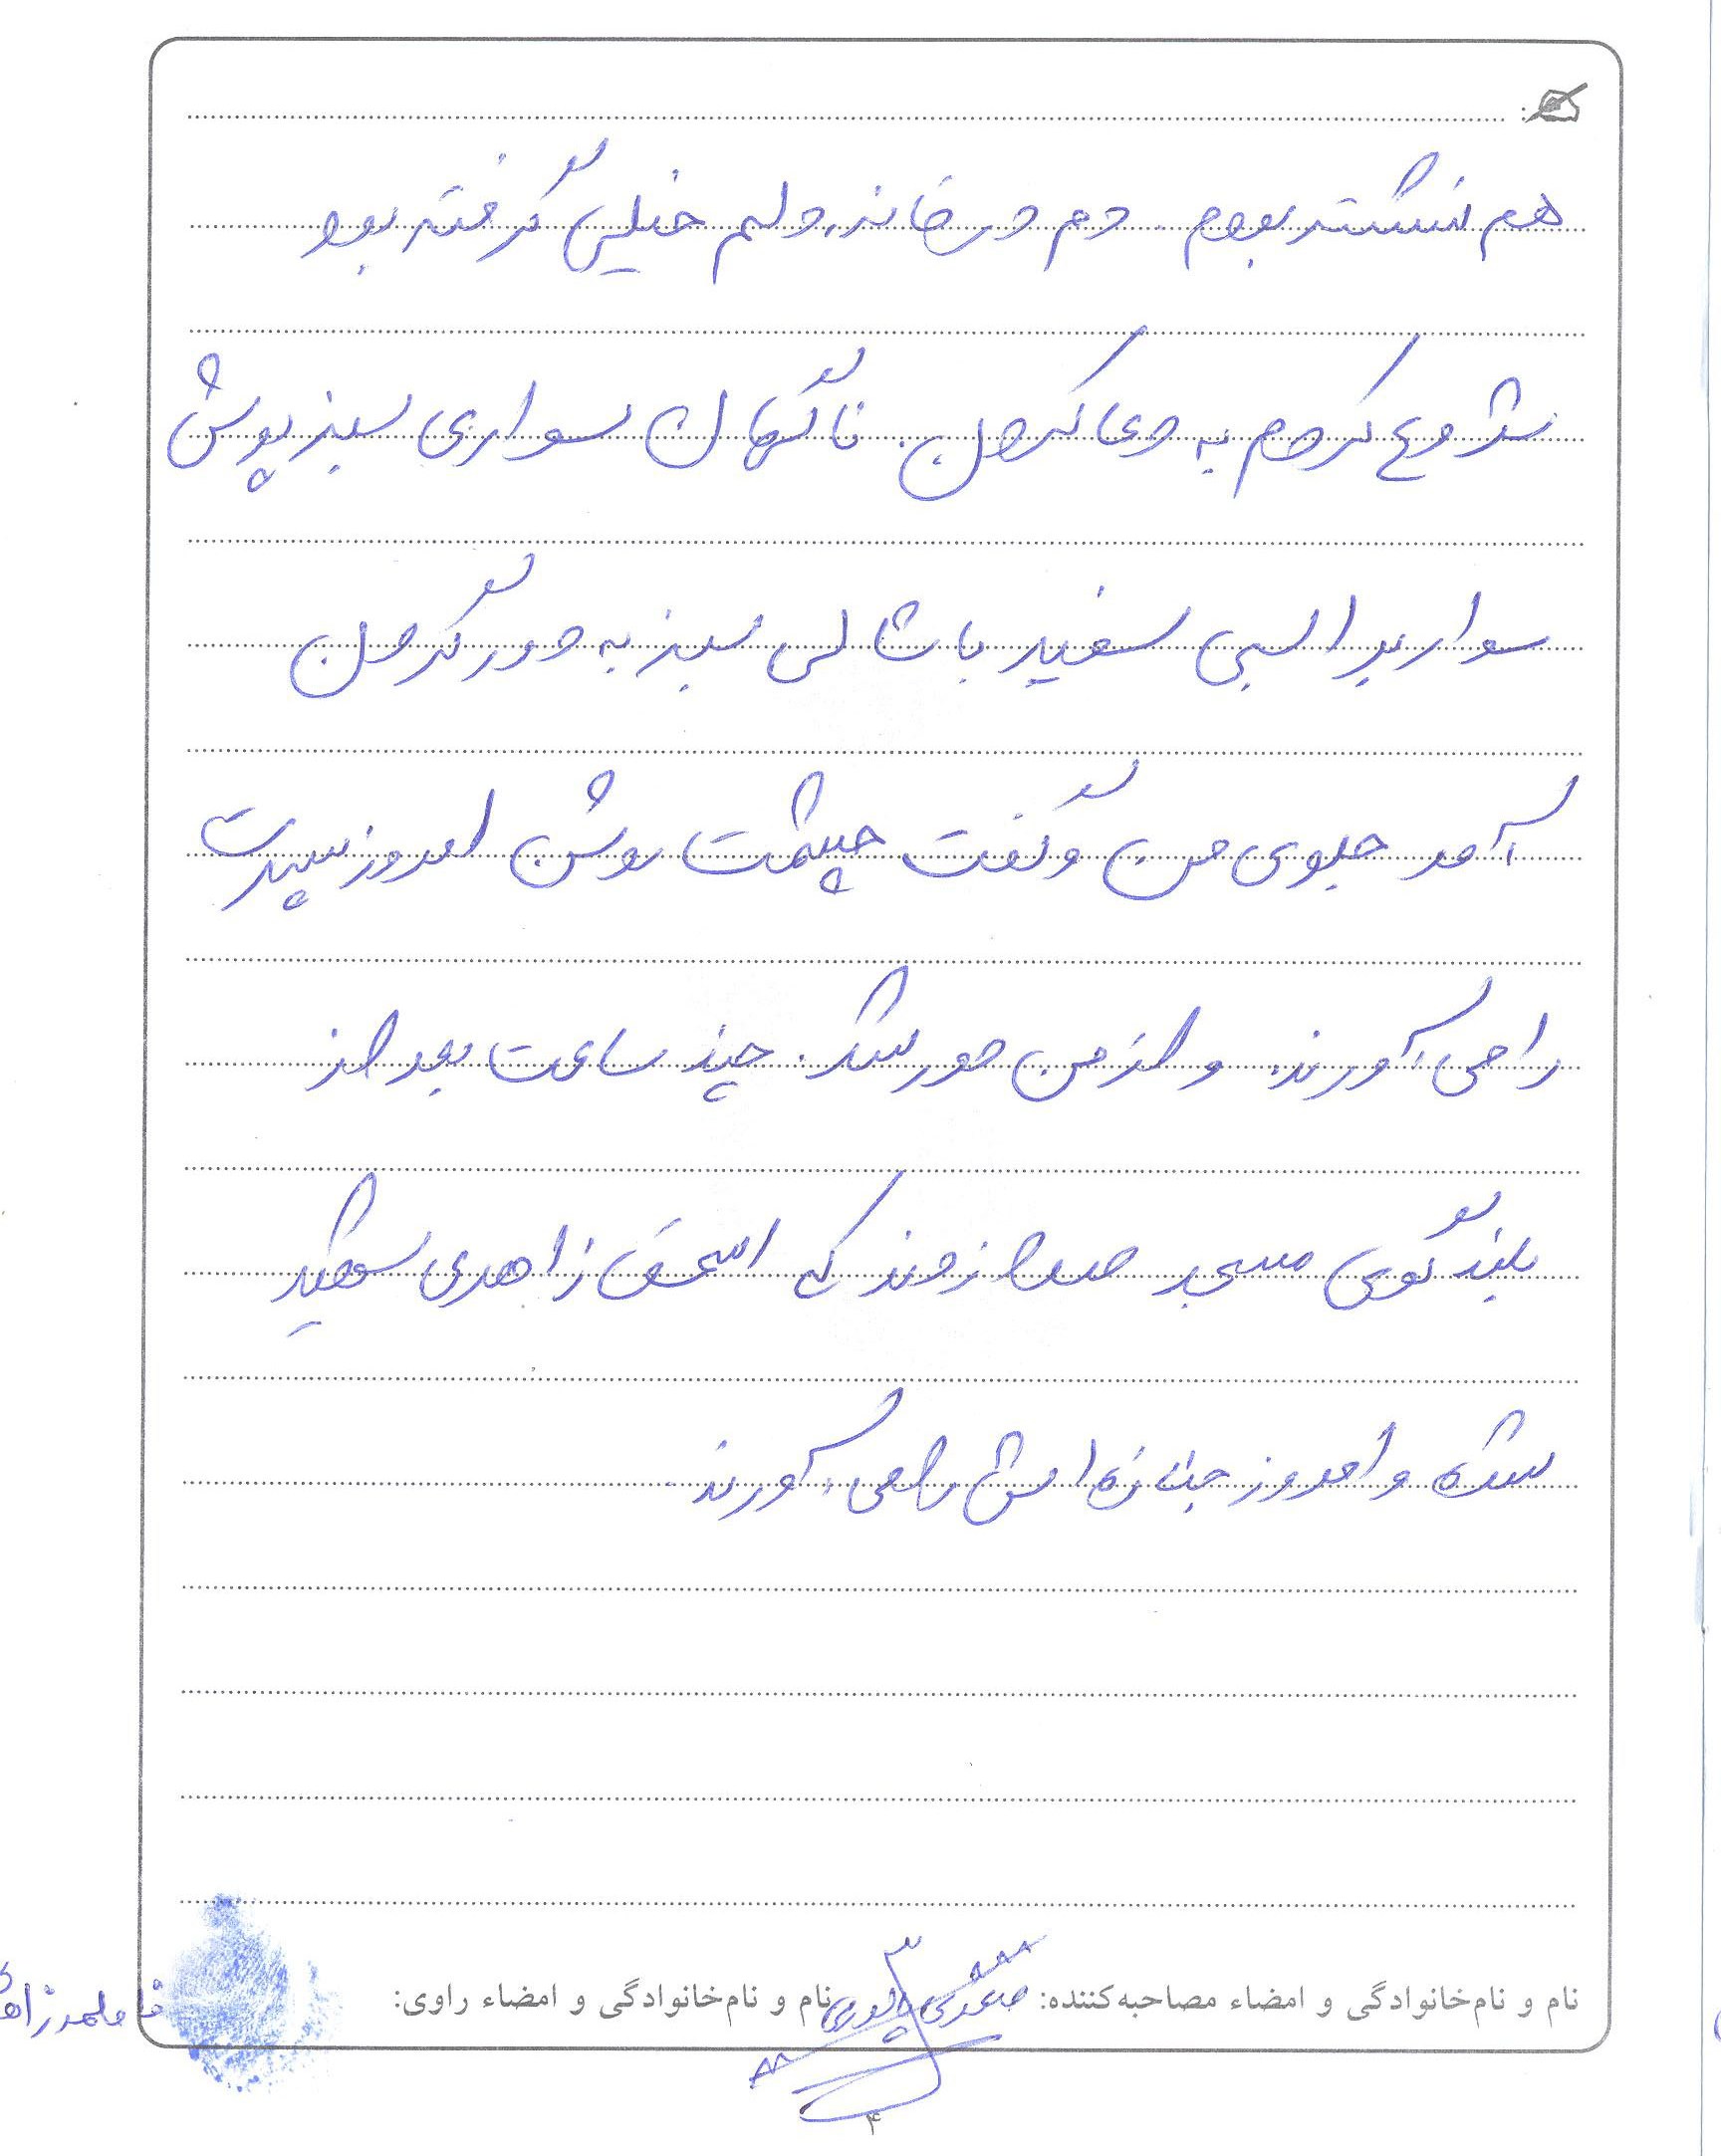 هم نشسته بودم. دم در خانه، دلم خیلی گرفته بود
شروع کردم به دعا کردن. ناگهان سواری سبز پوش
سوار بر اسبی سفید با شالی سبز به دور گردن
آمد جلوی من و گفت چشمت روشن امروز پسرت
را می آورند. و از من دور شد. چند ساعت بعد از
بلندگوی مسجد صدا زدند که اسحق زاهدی شهید
شده و امروز جنازه اش را می آورند
نام و نام‌خانوادگی و امضاء مصاحبه‌کننده: نام و نام‌خانوادگی و امضاء راوی:
۴